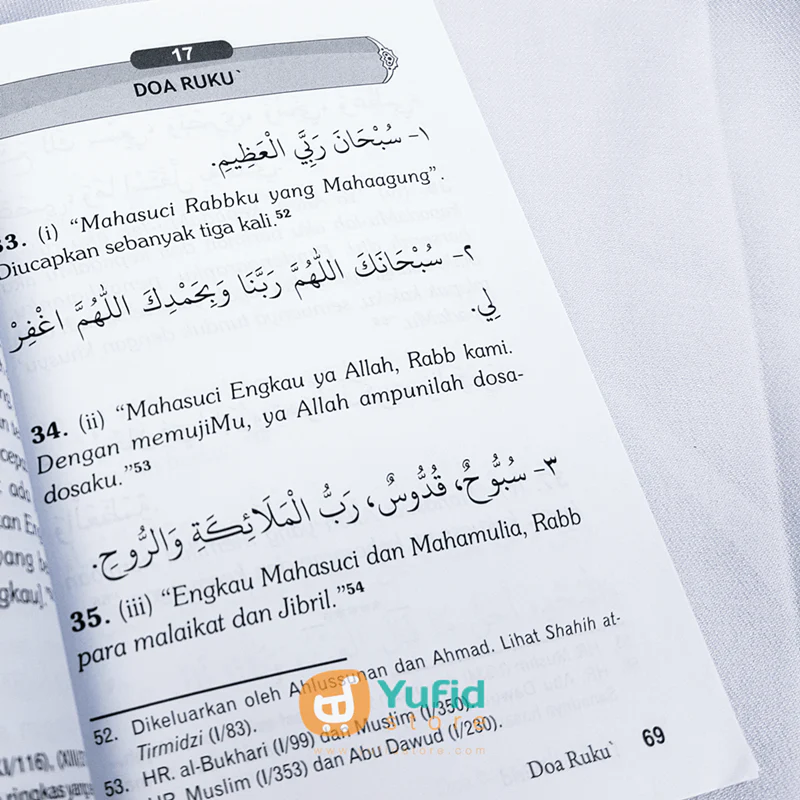 17
DOA RUKU`
١- سُبْحَانَ رَبِّيَ الْعَظِيمِ.
33. (i) “Mahasuci Rabbku yang Mahaagung”.
Diucapkan sebanyak tiga kali.52
٢- سُبْحَانَكَ اللّٰهُمَّ رَبَّنَا وَبِحَمْدِكَ اللّٰهُمَّ اغْفِرْ
لِي.
34. (ii) “Mahasuci Engkau ya Allah, Rabb kami.
Dengan memujiMu, ya Allah ampunilah dosa-
dosaku.”53
٣- سُبُّوحٌ، قُدُّوسٌ، رَبُّ الْمَلَائِكَةِ وَالرُّوحِ.
35. (iii) “Engkau Mahasuci dan Mahamulia, Rabb
para malaikat dan Jibril.”54
52. Dikeluarkan oleh Ahlussunan dan Ahmad. Lihat Shahih at-
Tirmidzi (I/83).
53. HR. al-Bukhari (I/99) dan Muslim (I/350).
HR. Muslim (I/353) dan Abu Dawud (I/230).
Doa Ruku` 69
Yufid
store